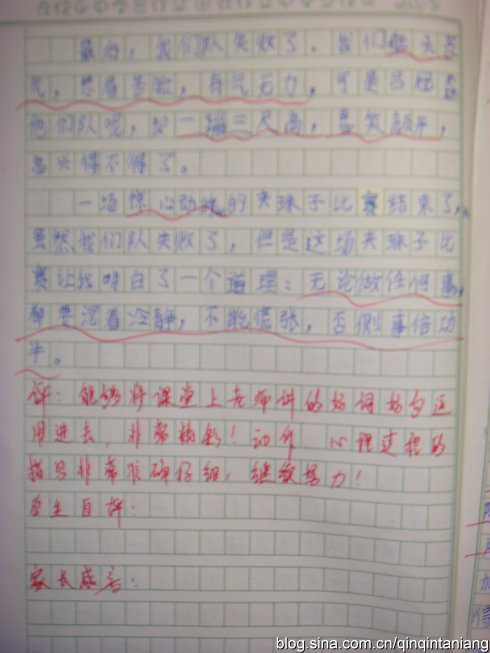 最后，我们队失败了。我们垂头丧
气，愁眉苦脸，有气无力，可是吕旭
他们队呢，如一蹦三尺高，喜笑颜开，
高兴得不得了。
一场惊心动魄的夹珠子比赛结束了，
虽然我们队失败了，但是这场夹珠子比
赛让我明白了一个道理：无论做任何事，
都要沉着冷静，不能慌张，否则事倍功
半。
评：能够将课堂上老师讲的好词好句运
用进去，非常精彩！动作 心理过程的
描写非常准确仔细，继续努力！
自主自评：
家长感言：
加
得
blog.sina.com.cn/qinqintaniang